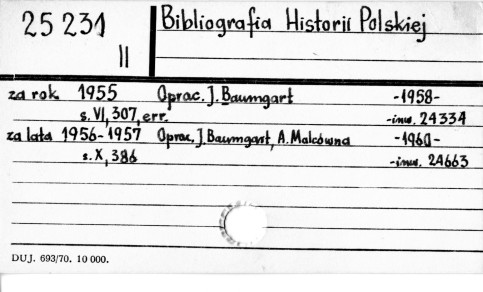 25 231
II
Bibliografia Historii Polskiej
za rok 1955 Oprac. J. Baumgart -1958-
s. VI, 307, err. -inw. 24334
za lata 1956-1957 Oprac. J. Baumgart, A. Malcówna -1960-
s. X, 386 -inw. 24663
DUJ. 693/70. 10 000.